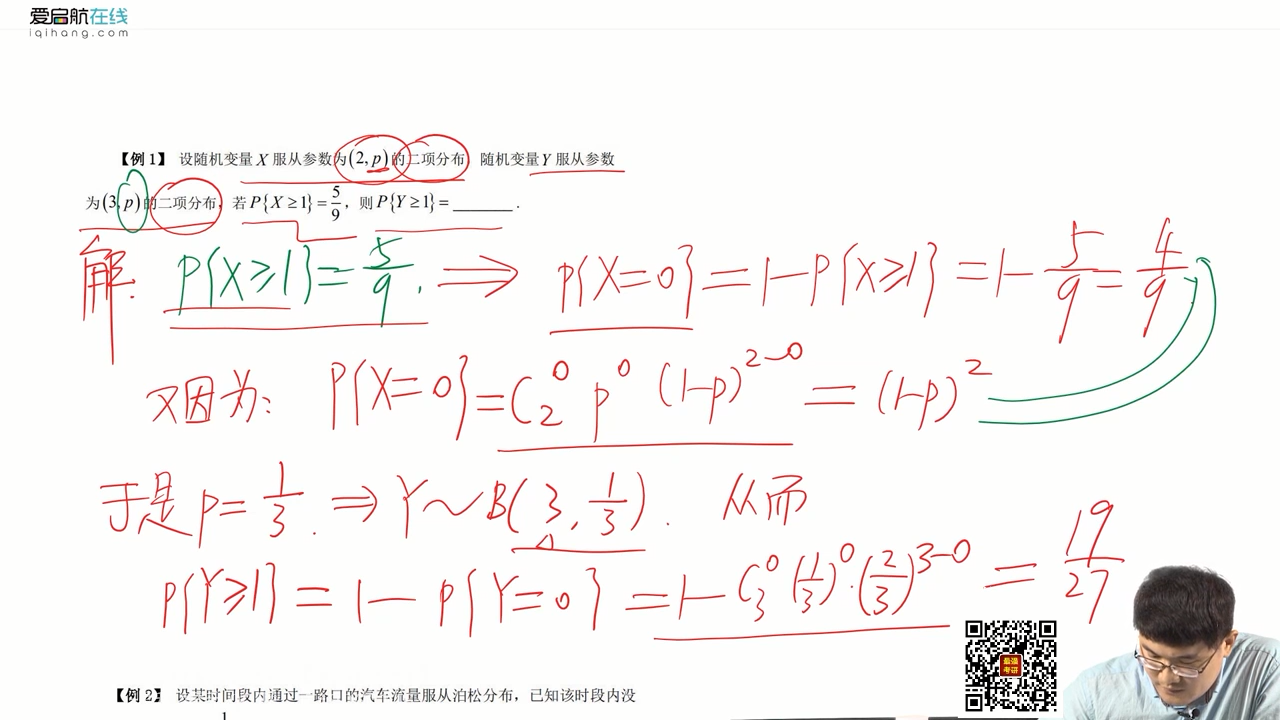 爱启航在线
iqihang.com
【例1】 设随机变量 X 服从参数为(2, p)的二项分布，随机变量 Y 服从参数
为(3, p)的二项分布，若 P{X ≥ 1} = 5/9，则 P{Y ≥ 1} = ________ .
解. P{X≥1} = 5/9. ⟹ P{X=0} = 1-P{X≥1} = 1-5/9 = 4/9
又因为: P{X=0} = C₂⁰ p⁰ (1-p)²⁻⁰ = (1-p)²
于是 p = 1/3. ⇒ Y~B(3, 1/3). 从而
P{Y≥1} = 1- P{Y=0} = 1- C₃⁰ (1/3)⁰·(2/3)³⁻⁰ = 19/27
最强考研
【例2】 设某时间段内通过一路口的汽车流量服从泊松分布，已知该时段内没
1